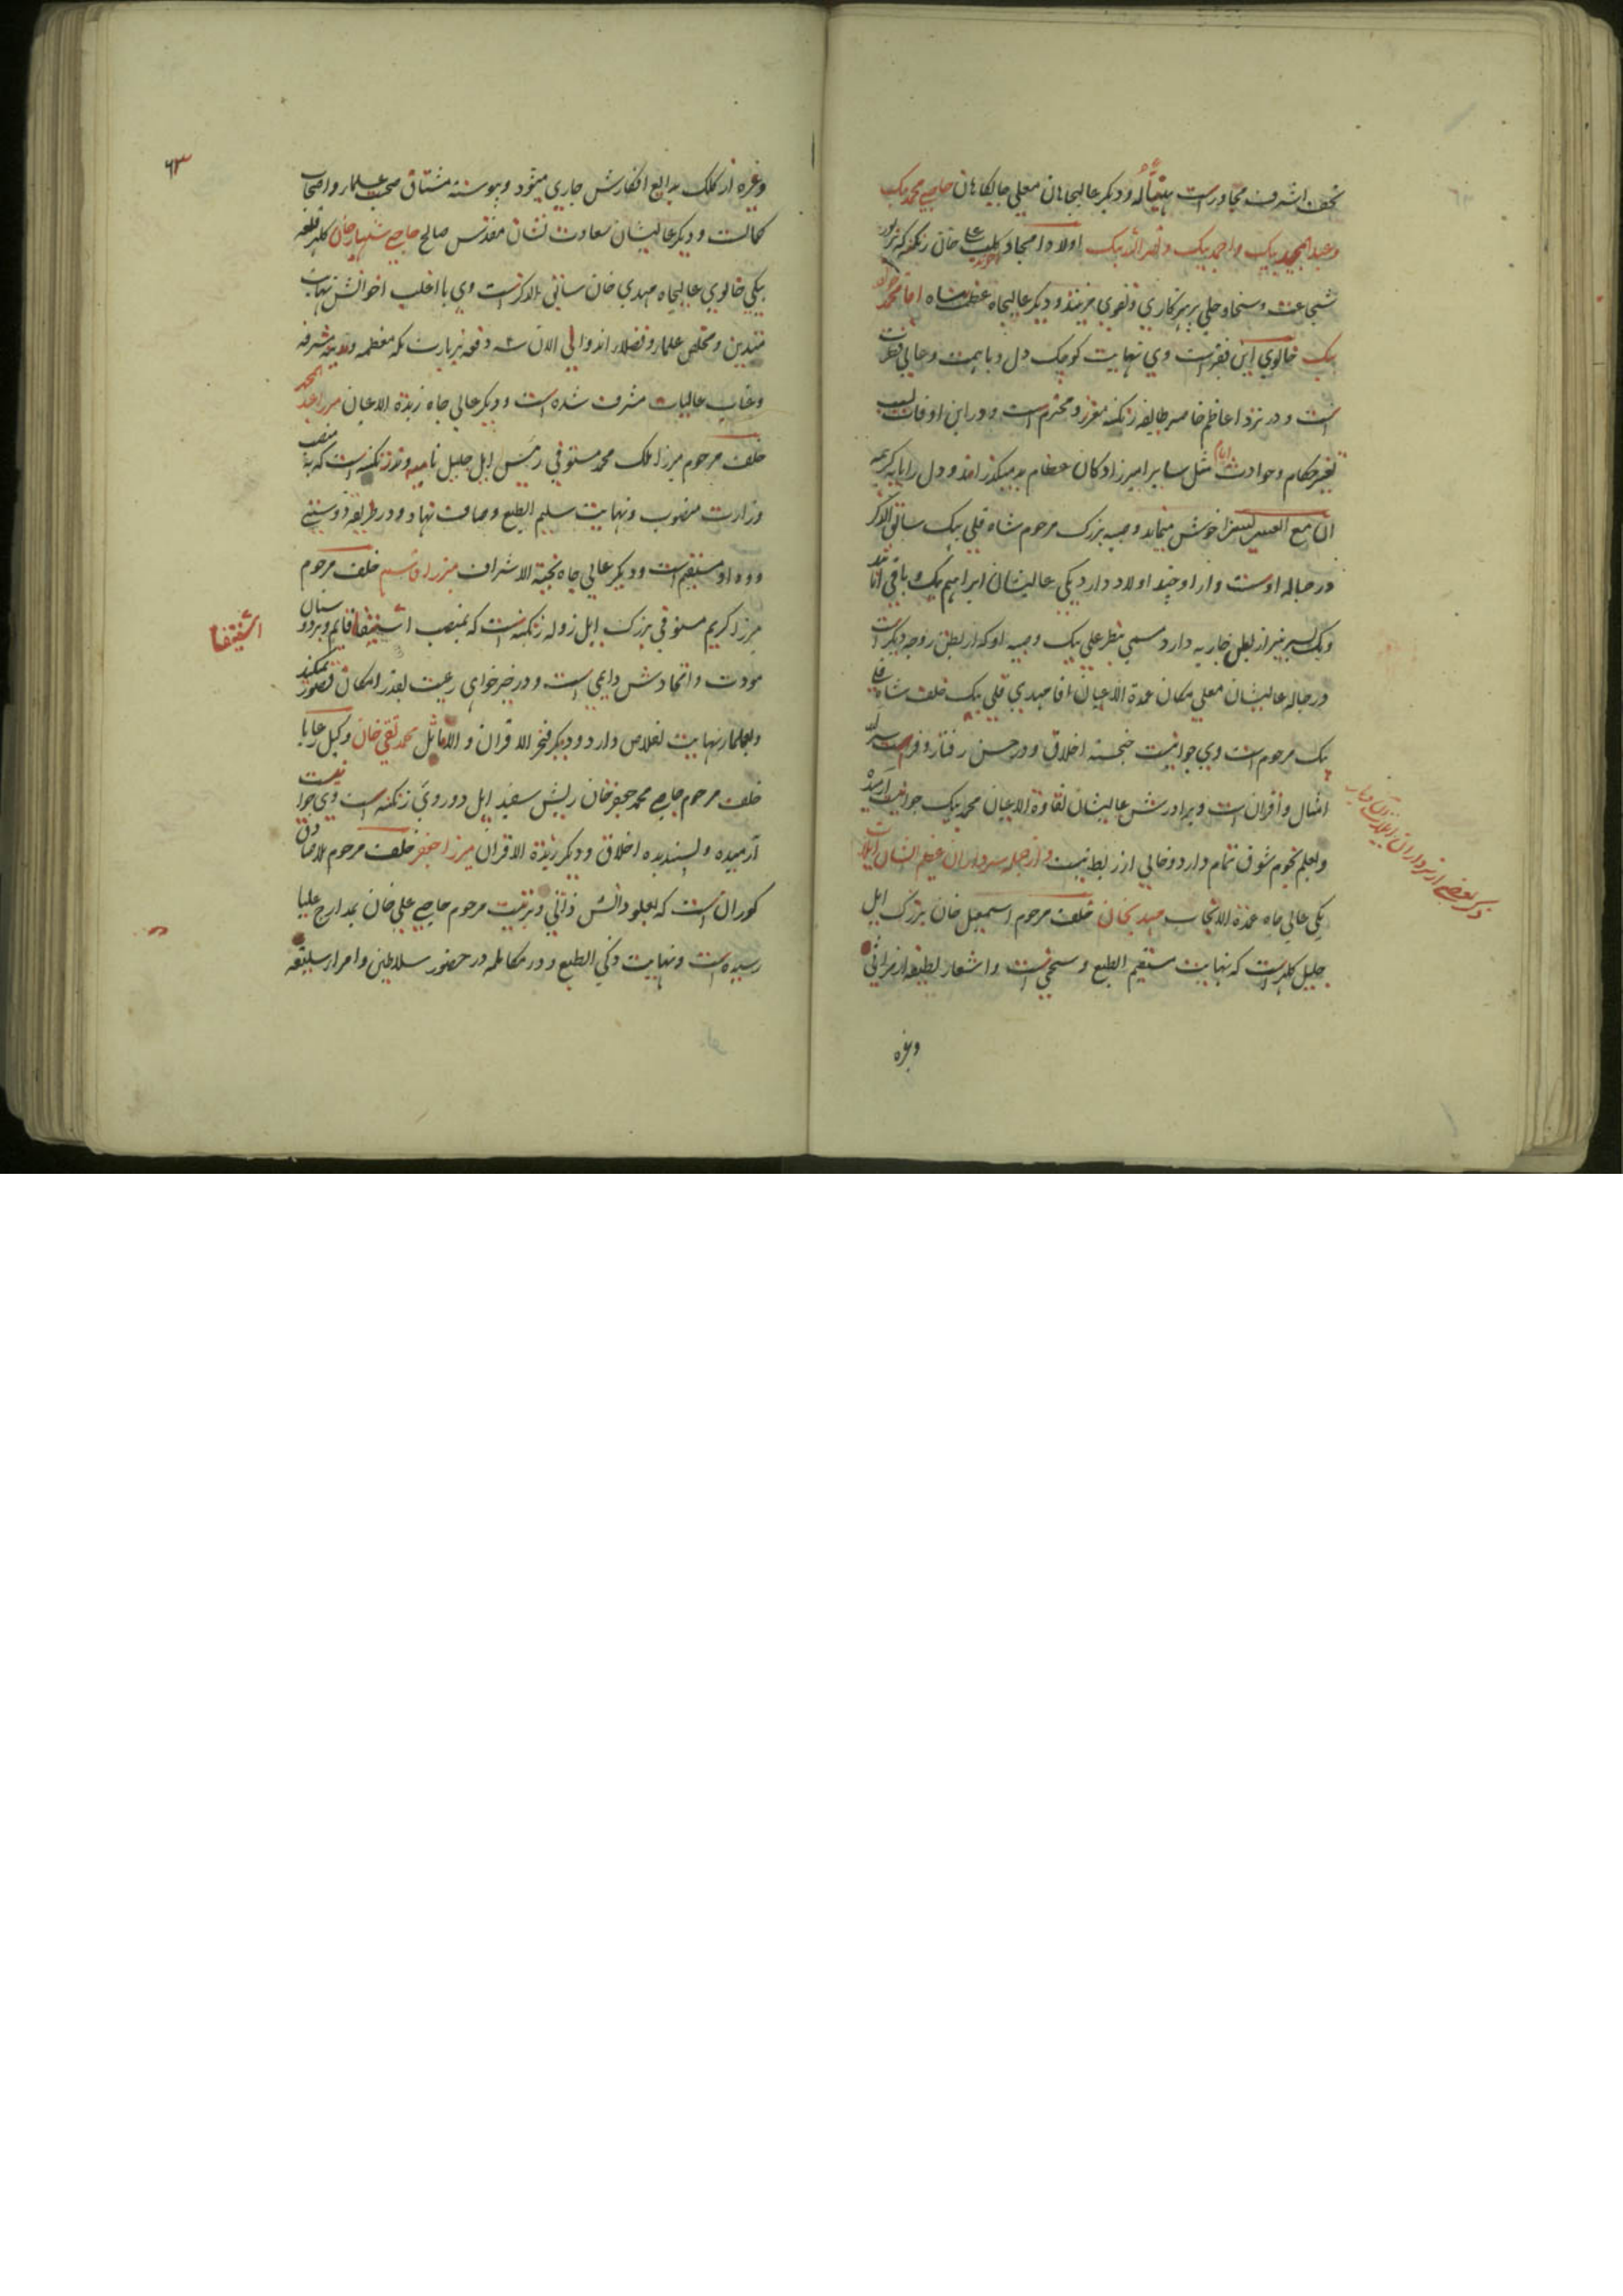 نجف اشرف مجاورست و دیگر عالیجاهان معلی جایگاهان حاجی محمد بیک
و عبدالمجید بیک و احمد بیک و نصرالله بیک اولاد امجاد کلبعلی خان زنکنه که بزیور
شجاعت و سخا و حلی پرهیزکاری و تقوی مزینند و دیگر عالیجاه عظمت پناه اقا محمد
بیک خالوی این فقیرست وی نهایت کوچک دل و با همت و حالی فطرت
است و در نزد اعاظم خاصه طایفه زنکنه معزز و محترم است و در این اوقات بسبب
تغیر حکام و حوادث ایام مثل سایر امیرزادکان عظام بد میکذراند و دل را بآیه کریمه
ان مع العسر یسرا خوش مینماید و صبیه بزرک مرحوم شاه قلی بیک سابق الذکر
در حباله اوست و از او چند اولاد دارد یکی عالیشان ابراهیم بیک و باقی اناثند
و یک پسر نیز از بطن جاریه دارد مسمی بنظر علی بیک و صبیه او که از بطن زوجه دیگر است
در حباله عالیشان معلی مکان عمدة الاعیان اقا مهدی قلی بیک خلف شاه علی
بیک مرحوم است وی جوانیست خجسته اخلاق و در حسن رفتار و فراست سرآمد
امثال و أقران است و برادرش عالیشان نقاوة الاعیان محمد بیک جوانیست آرمیده
و بعلم نجوم شوق تمام دارد و خالی از ربط نیست و از جمله سرداران عظیم الشان ایلات
یکی عالی جاه عمدة الانجاب مهدیخان خلف مرحوم اسمعیل خان بزرک ایل
جلیل کلهر است که نهایت مستقیم الطبع و سخی است و اشعار لطیفه از مراثی
وغیره
ذکر بعضی از سرداران ایلات آن دیار
٦٣
وغیره از کلک بدایع افکارش جاری میشود و پیوسته مشتاق صحبت علما و اصحاب
کمالست و دیگر عالیشان سعادت نشان مقدس صالح حاجی شهباز خان کلهر قلعه
بیکی خالوی عالیجاه مهدی خان سابق الذکرست وی با اغلب اخوانش نهایت
متدین و مخلص علما و فضلا اند و الی الان سه دفعه بزیارت مکه معظمه و مدینه مشرفه
و عتبات عالیات مشرف شده است و دیگر عالی جاه زبدة الاعیان میرزا عبد المحمد
خلف مرحوم میرزا ملک محمد مستوفی رئیس ایل جلیل نامیه وند زنکنه است که بمنصب
وزارت منصوب و نهایت سلیم الطبع و صافت نهاد و در طریقه دوستی
و وداد مستقیم است و دیگر عالی جاه نخبة الاشراف میرزا قاسم خلف مرحوم
میرزا کریم مستوفی بزرک ایل زوله زنکنه است که بمنصب استیفا قایم و بر دوستان
مودت و اتحادش دایمی است و در خیر خواهی رعیت بقدر امکان قصور نمیکند
و بعلما نهایت اخلاص دارد و دیگر فخر الاقران و الاماثل محمد تقی خان وکیل رعایا
خلف مرحوم حاجی محمد جعفر خان ریش سفید ایل دورویی زنکنه است وی جوانیست
آرمیده و پسندیده اخلاق و دیگر زبدة الاقران میرزا جعفر خلف مرحوم ملا صادق
کوران است که بعلو دانش ذاتی و تربیت مرحوم حاجی علی خان بمدارج علیا
رسیده است و نهایت ذکی الطبع و در مکالمه در حضور سلاطین و امرا سلیقه
استیفا